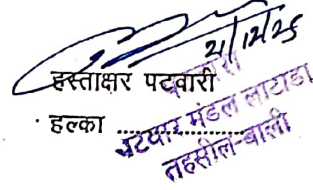 21/12/25
हस्ताक्षर पटवारी
हल्का ..................
पटवारी
पटवार मंडल लाटाडा
तहसील-बाली